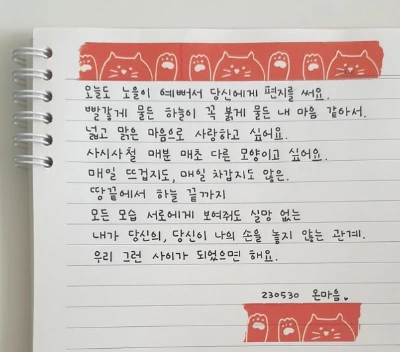 오늘도 노을이 예뻐서 당신에게 편지를 써요.
빨갛게 물든 하늘이 꼭 붉게 물든 내 마음 같아서.
넓고 맑은 마음으로 사랑하고 싶어요.
사시사철 매분 매초 다른 모양이고 싶어요.
매일 뜨겁지도, 매일 차갑지도 않은.
땅끝에서 하늘 끝까지
모든 모습 서로에게 보여줘도 실망 없는
내가 당신의, 당신이 나의 손을 놓지 않는 관계.
우리 그런 사이가 되었으면 해요.
230530 온마음